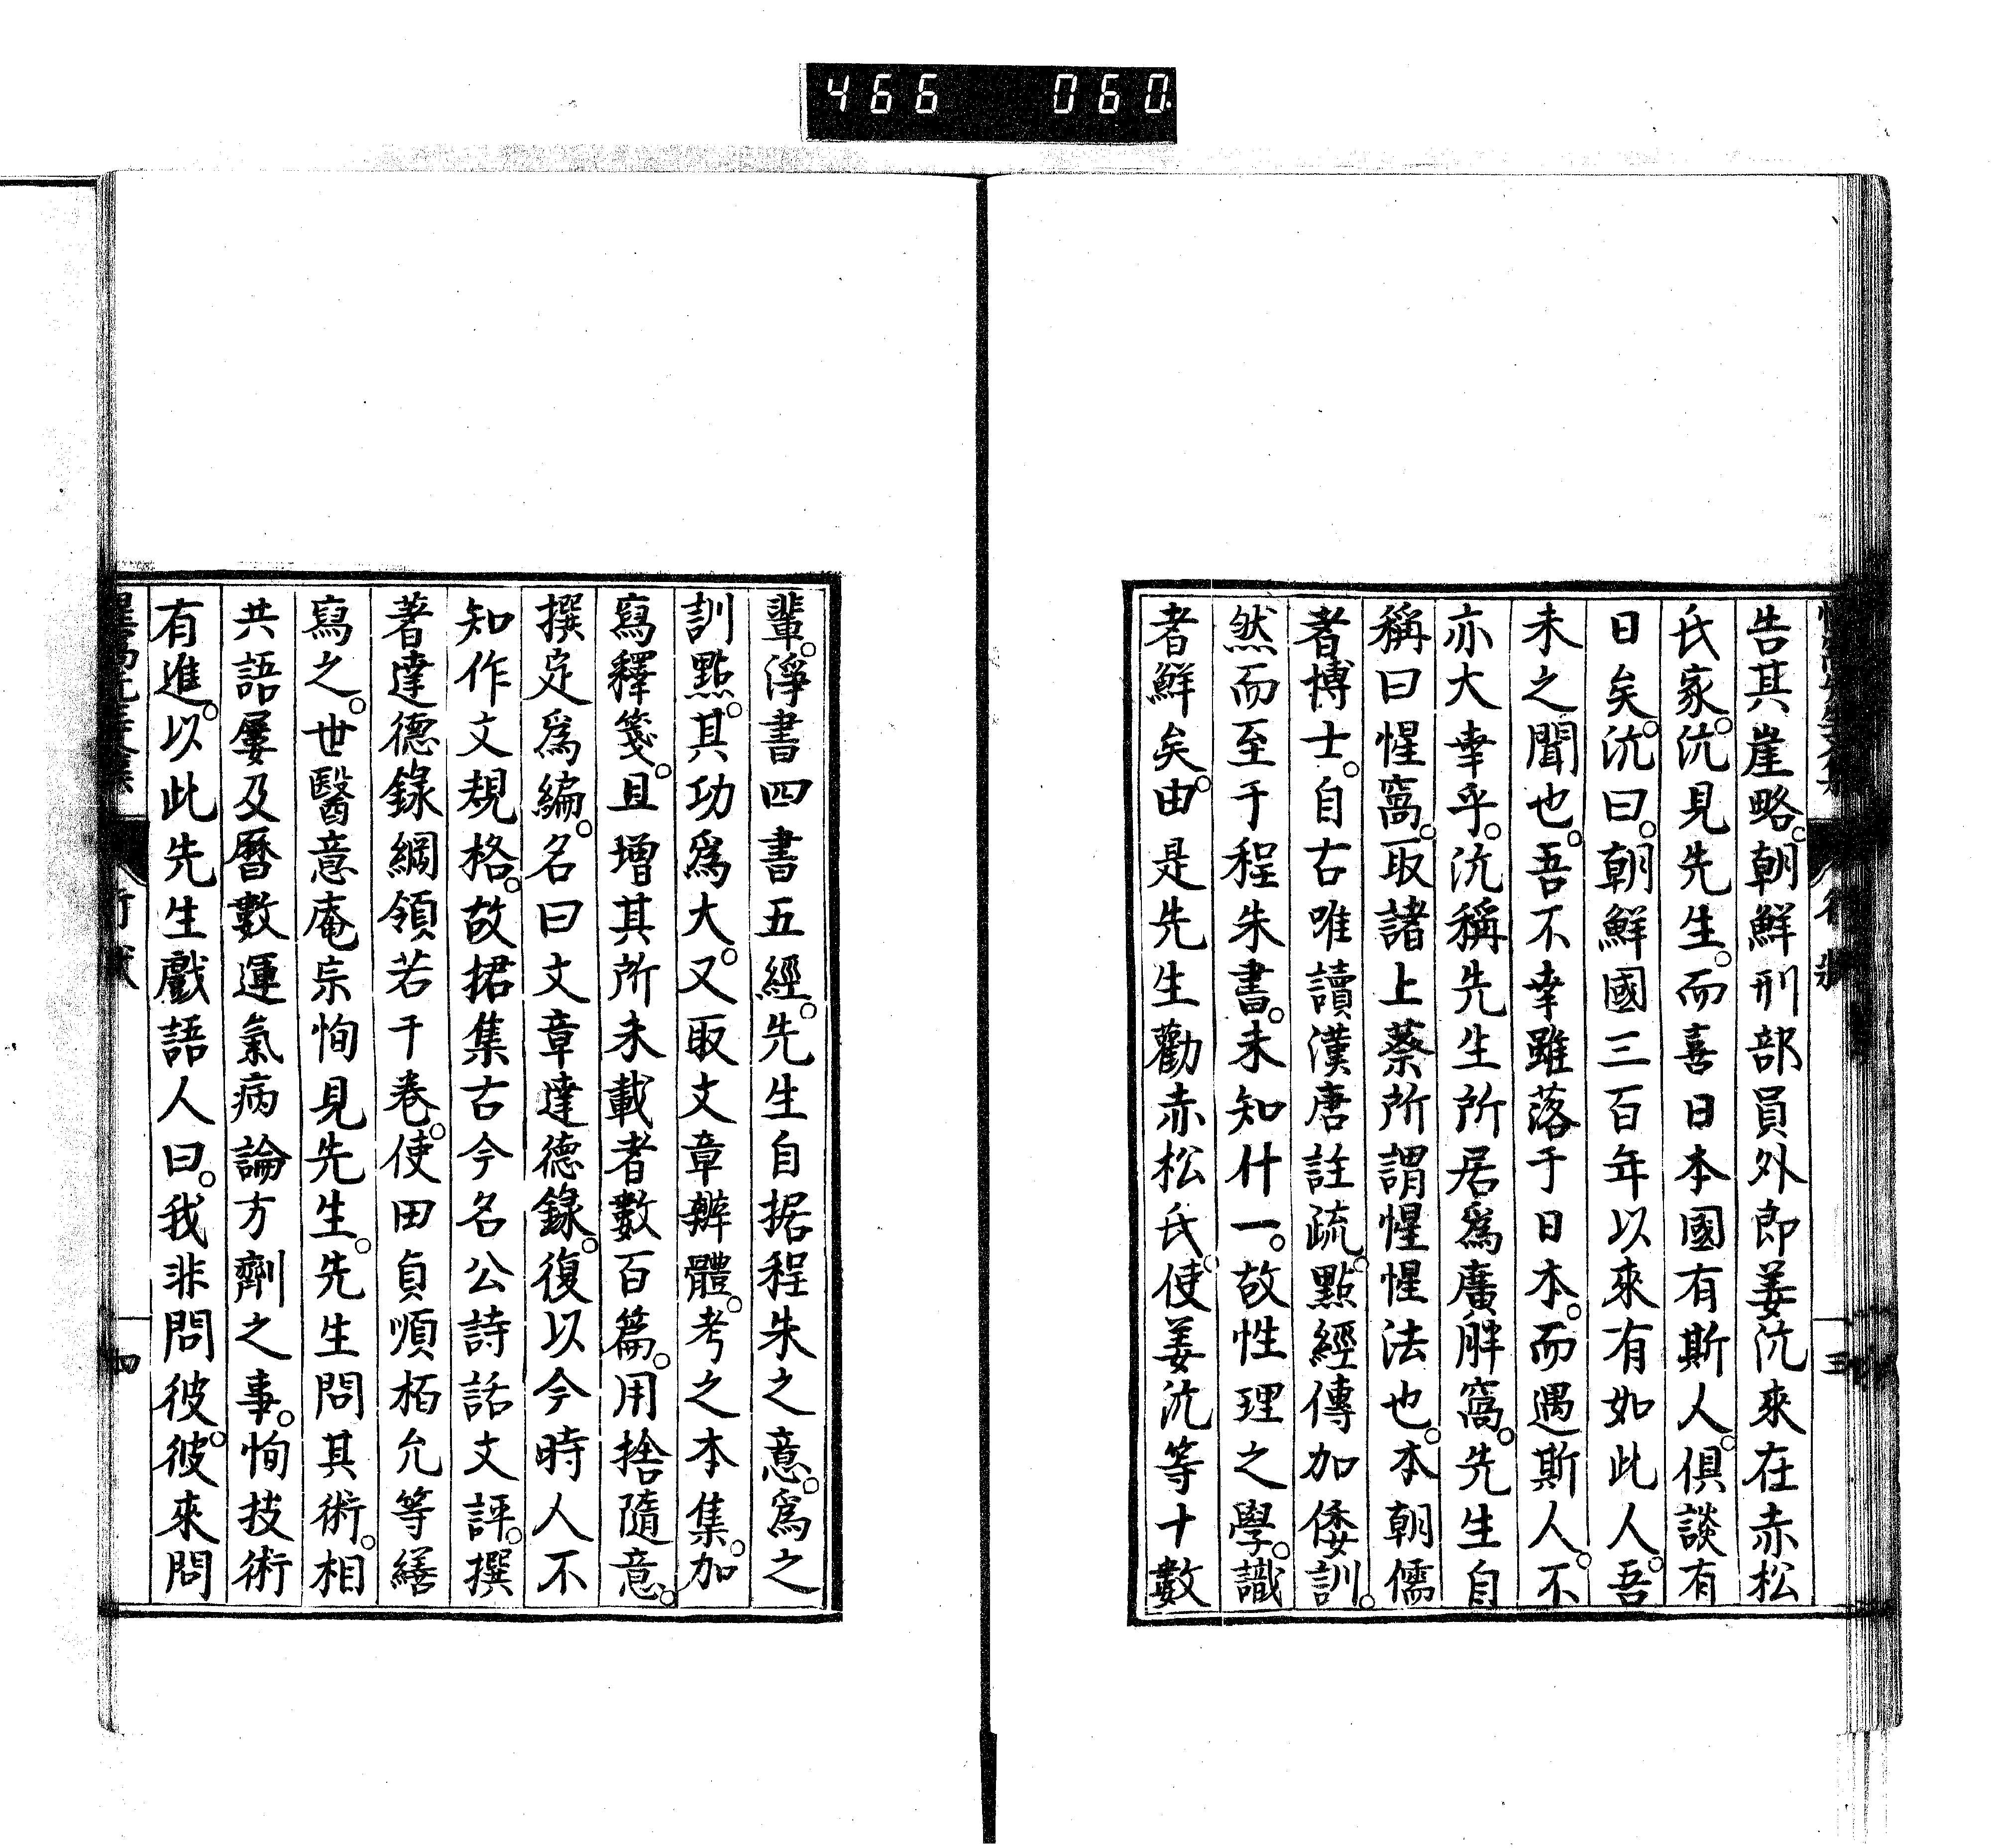 466 060
告其崖略。朝鮮刑部員外郎姜沆來在赤松
氏家。沆見先生。而喜日本國有斯人。俱談有
日矣。沆曰。朝鮮國三百年以來有如此人。吾
未之聞也。吾不幸雖落于日本。而遇斯人。不
亦大幸乎。沆稱先生所居爲廣胖窩。先生自
稱曰惺窩。取諸上蔡所謂惺惺法也。本朝儒
者博士。自古唯讀漢唐註疏。點經傳加倭訓。
然而至于程朱書。未知什一。故性理之學。識
者鮮矣。由是先生勸赤松氏。使姜沆等十數
輩。淨書四書五經。先生自据程朱之意。爲之
訓點。其功爲大。又取文章辨體。考之本集。加
寫釋箋。且增其所未載者數百篇。用捨隨意。
撰定爲編。名曰文章達德錄。復以今時人不
知作文規格。故捃集古今名公詩話文評。撰
著達德錄綱領若干卷。使田貞順栢允等繕
寫之。世醫意庵宗恂見先生。先生問其術。相
共語屢及曆數運氣病論方劑之事。恂技術
有進。以此先生戲語人曰。我非問彼。彼來問